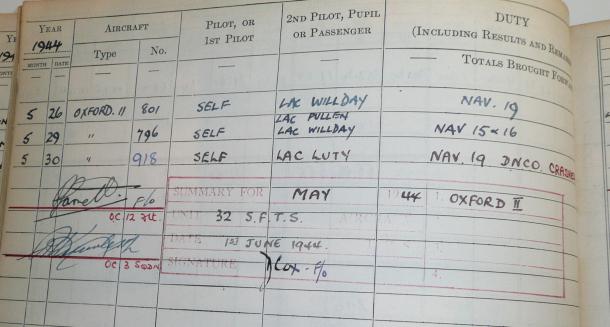 YEAR AIRCRAFT PILOT, OR 2ND PILOT, PUPIL DUTY
1944 1ST PILOT OR PASSENGER (INCLUDING RESULTS AND REMA
MONTH DATE Type No.
— — — — — — TOTALS BROUGHT FORW
5 26 OXFORD. II 801 SELF LAC WILLDAY NAV. 19
LAC PULLEN
5 29 " 796 SELF LAC WILLDAY NAV 15 & 16
5 30 " 918 SELF LAC LUTY NAV. 19 DNCO. CRASHED
F/O SUMMARY FOR MAY 1944 1. OXFORD II
OC 12 Flt. UNIT 32 S.F.T.S. AIRCRAFT
DATE 1ST JUNE 1944.
OC 3 SQDN SIGNATURE Cox - F/O 4.